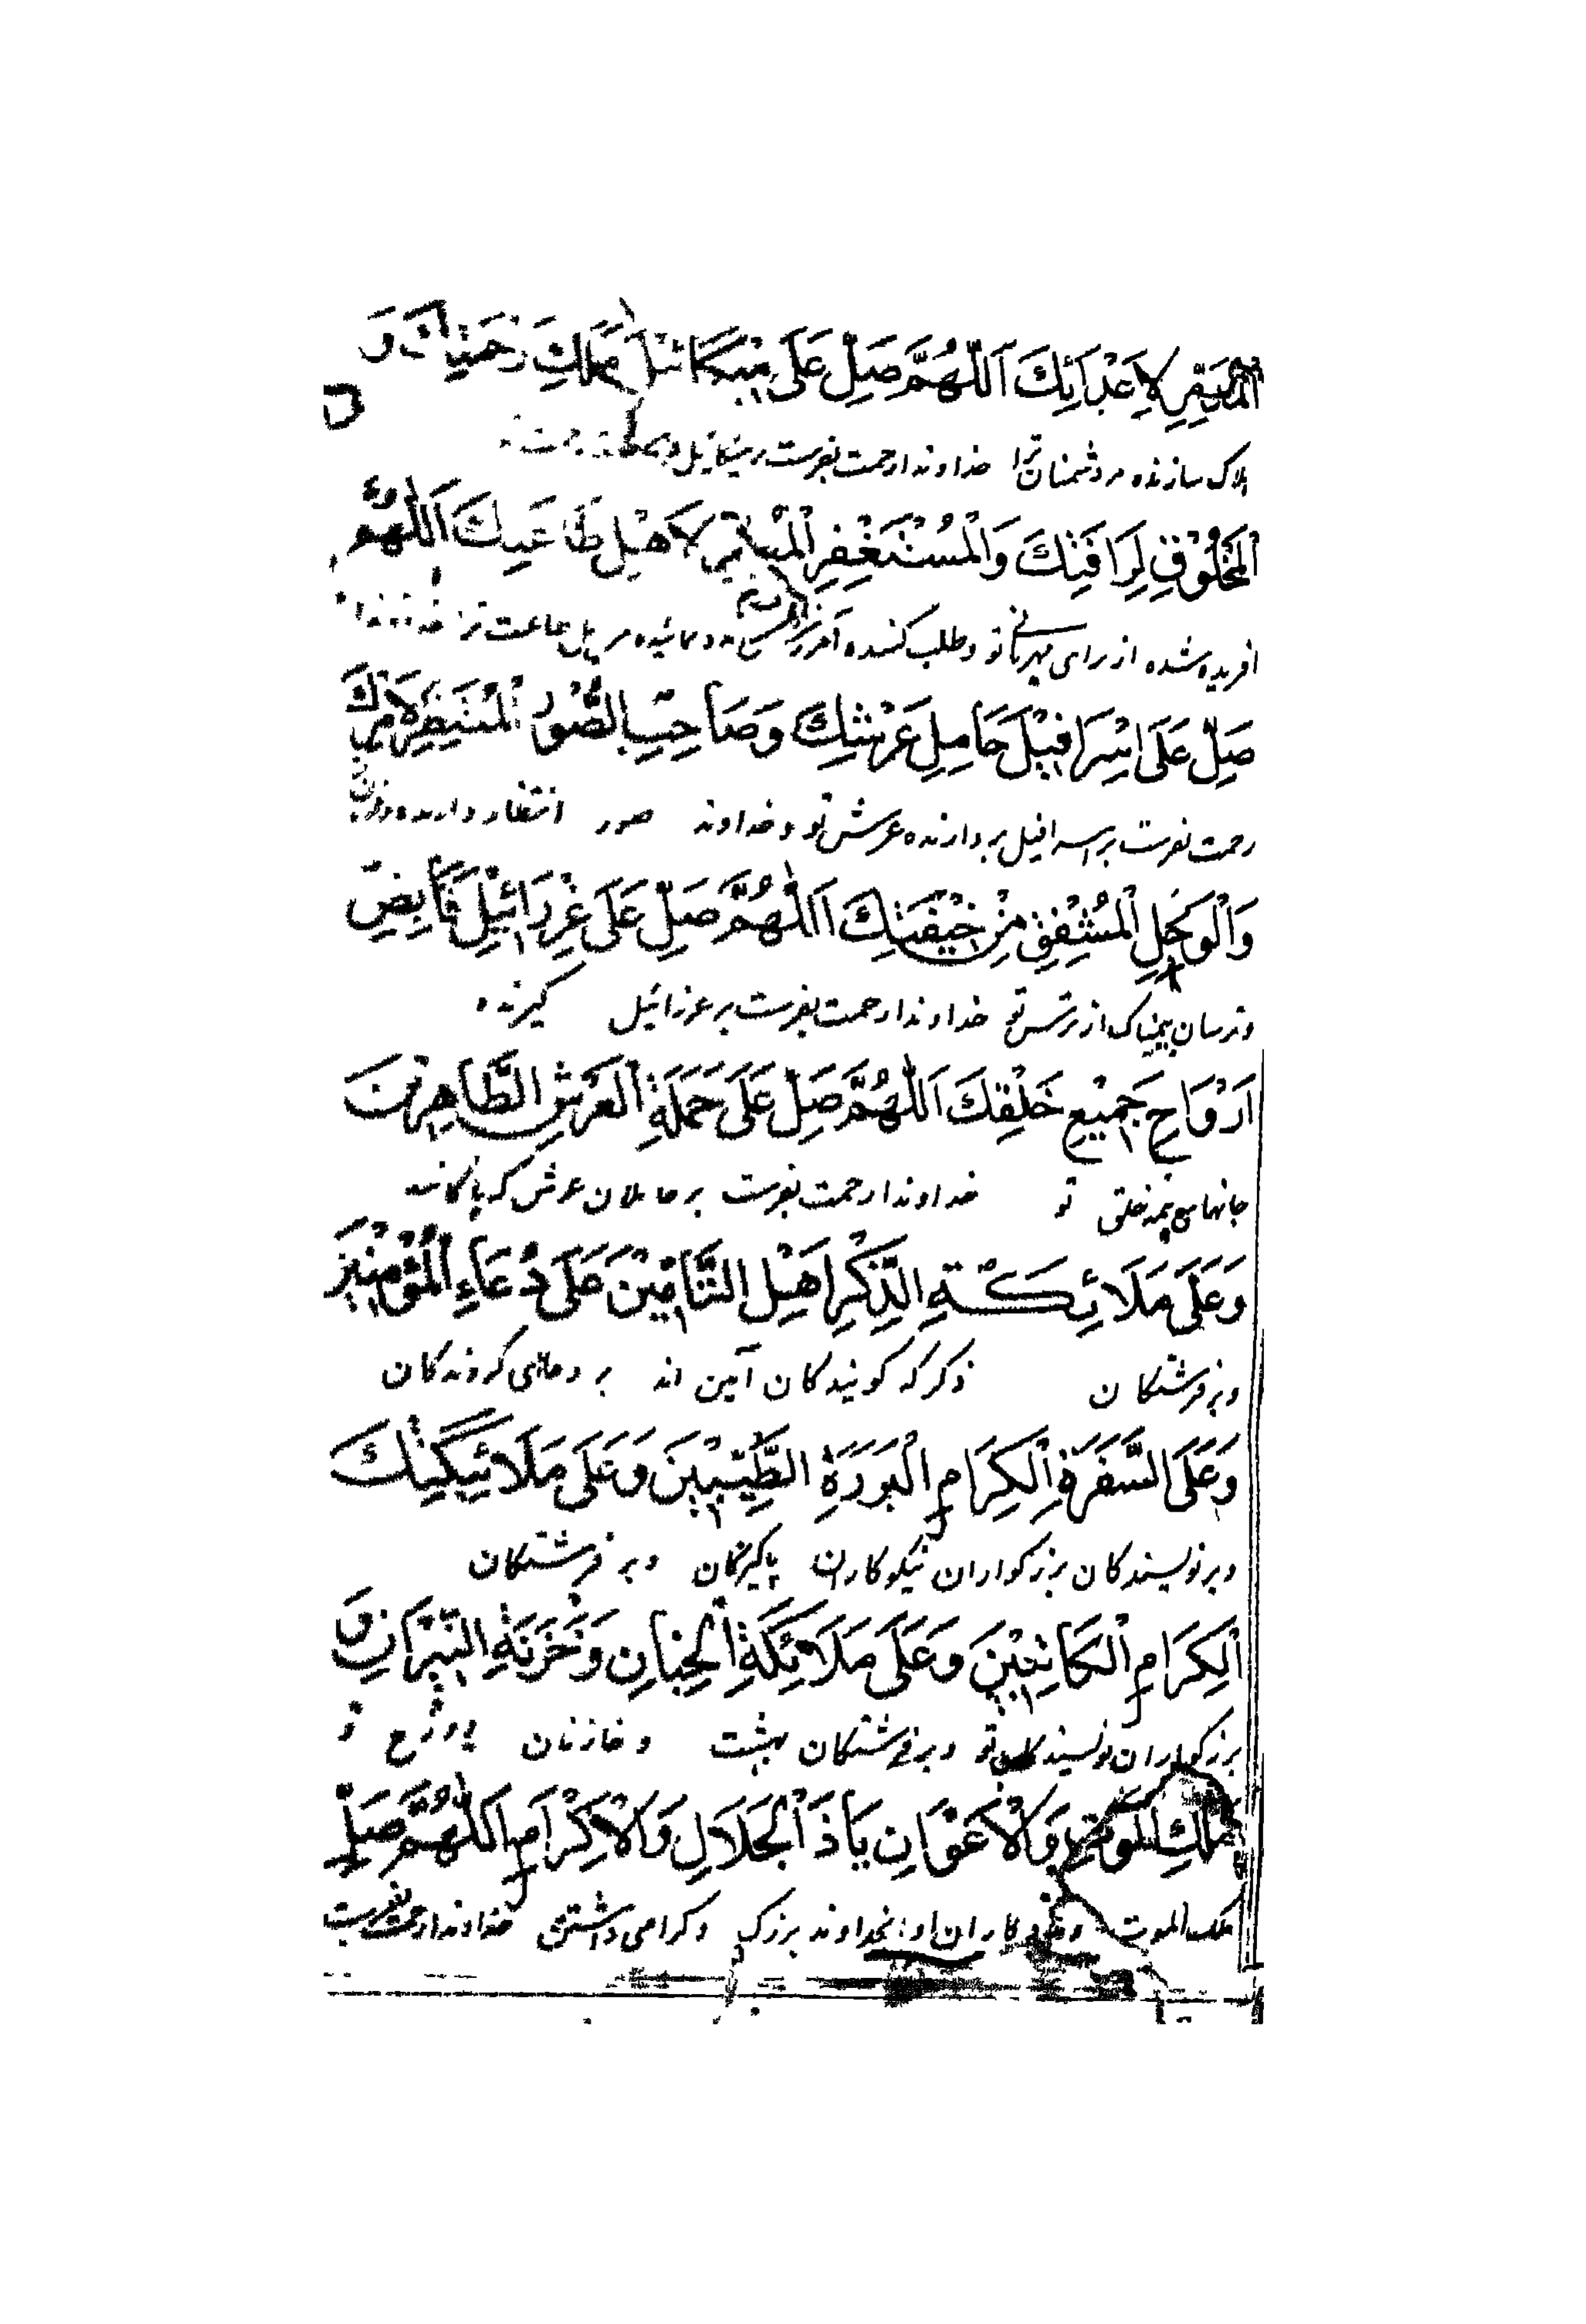 الْمُدَمِّرِ لِاَعْدَائِكَ اَللّٰهُمَّ صَلِّ عَلَى مِيْكَائِيْلَ مَلَكِ رَحْمَتِكَ وَ
هلاک سازنده مر دشمنان ترا خداوندا رحمت بفرست بر میکائیل
الْمَخْلُوْقِ لِرَافَتِكَ وَالْمُسْتَغْفِرِ الْمُعِيْنِ لِاَهْلِ طَاعَتِكَ اَللّٰهُمَّ
افریده شده از برای مهربانی تو و طلب کننده آمرزش مر اهل طاعت ترا خداوندا
صَلِّ عَلَى اِسْرَافِيْلَ حَامِلِ عَرْشِكَ وَصَاحِبِ الصُّوْرِ الْمُنْتَظِرِ لِاَمْرِكَ
رحمت بفرست بر اسرافیل بردارنده عرش تو و خداوند صور انتظار دارنده
وَالْوَجِلِ الْمُشْفِقِ مِنْ خِيْفَتِكَ اَللّٰهُمَّ صَلِّ عَلَى عِزْرَائِيْلَ قَابِضِ
و ترسان بیمناک از ترس تو خداوندا رحمت بفرست بر عزرائیل گیرنده
اَرْوَاحِ جَمِيْعِ خَلْقِكَ اَللّٰهُمَّ صَلِّ عَلَى حَمَلَةِ الْعَرْشِ الطَّاهِرِيْنَ
جانهای همه خلق تو خداوندا رحمت بفرست بر حاملان عرش که پاکانند
وَعَلَى مَلَائِكَةِ الذِّكْرِ اَهْلِ التَّامِيْنَ عَلَى دُعَاءِ الْمُؤْمِنِيْنَ
و بر فرشتکان ذکر که کویندکان آمین اند بر دعای کروندکان
وَعَلَى السَّفَرَةِ الْكِرَامِ الْبَرَرَةِ الطَّيِّبِيْنَ وَعَلَى مَلَائِكَتِكَ
و بر نویسندکان بزرکواران نیکوکاران پاکیزکان و بر فرشتکان
الْكِرَامِ الْكَاتِبِيْنَ وَعَلَى مَلَائِكَةِ الْجِنَانِ وَخَزَنَةِ النِّيْرَانِ وَ
بزرکواران نویسندکان تو و بر فرشتکان بهشت و خازنان دوزخ و
مَلَكِ الْمَوْتِ وَالْاَعْوَانِ يَا ذَا الْجَلَالِ وَالْاِكْرَامِ اَللّٰهُمَّ صَلِّ
ملک الموت و مددکاران او ای خداوند بزرکی و کرامی داشتن خداوندا رحمت بفرست